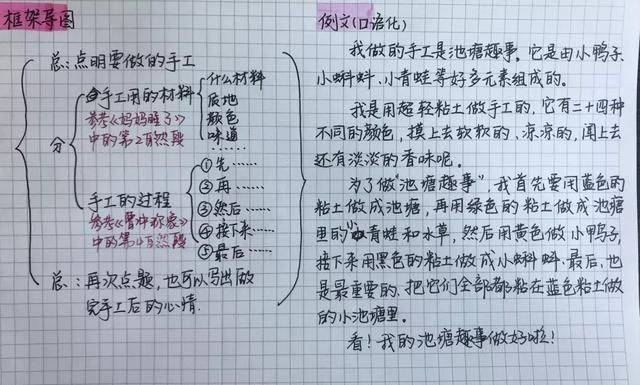 框架导图
总：点明要做的手工
分
手工用的材料
参考《妈妈睡了》
中的第2自然段
什么材料
质地
颜色
味道
手工的过程
参考《曹冲称象》
中的第4自然段
①先……
②再……
③然后……
④接下来……
⑤最后……
总：再次点题，也可以写出做
完手工后的心情.
例文(口语化)
我做的手工是池塘趣事。它是由小鸭子、
小蝌蚪、小青蛙等好多元素组成的。
我是用超轻粘土做手工的，它有二十四种
不同的颜色，摸上去软软的、凉凉的，闻上去
还有淡淡的香味呢。
为了做“池塘趣事”，我首先要用蓝色的
粘土做成池塘，再用绿色的粘土做成池塘
里的青蛙和水草，然后用黄色做小鸭子，
接下来用黑色的粘土做成小蝌蚪.最后，也
是最重要的、把它们全部都粘在蓝色粘土做
的小池塘里。
看！我的池塘趣事做好啦！